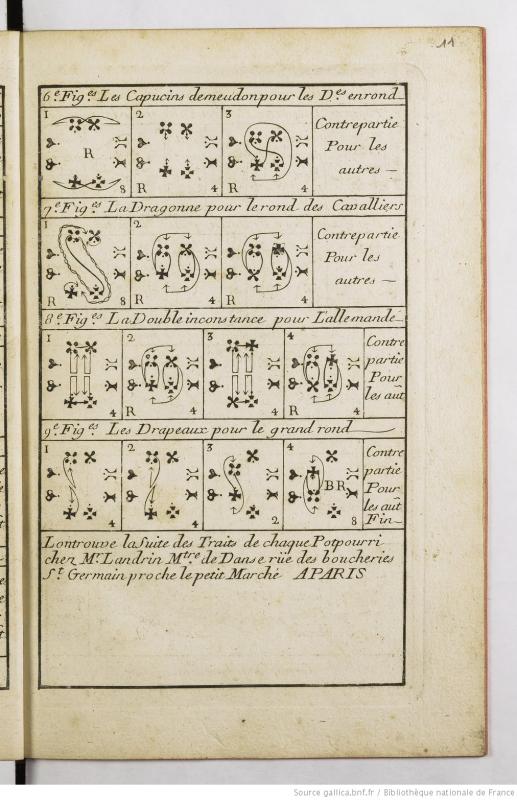 11
6e Figes Les Capucins demeudon pour les Des en rond
1 2 3
R
8 R 4 R 4
Contrepartie
Pour les
autres
7e Figes La Dragonne pour le rond des Cavalliers
1 2
R 8 R 4 R 4
Contrepartie
Pour les
autres
8e Figes La Double inconstance pour L'allemande
1 2 3 4
4 R 4 4 R 4
Contre
partie
Pour
les aut
9e Figes Les Drapeaux pour le grand rond
1 2 3 4
BR
4 4 2 8
Contre
partie
Pour
les aut
Fin
Lontrouve la Suite des Traits de chaque Potpourri
chez Mr Landrin Mtre de Danse rüe des boucheries
St Germain proche le petit Marché A PARIS
Source gallica.bnf.fr / Bibliothèque nationale de France